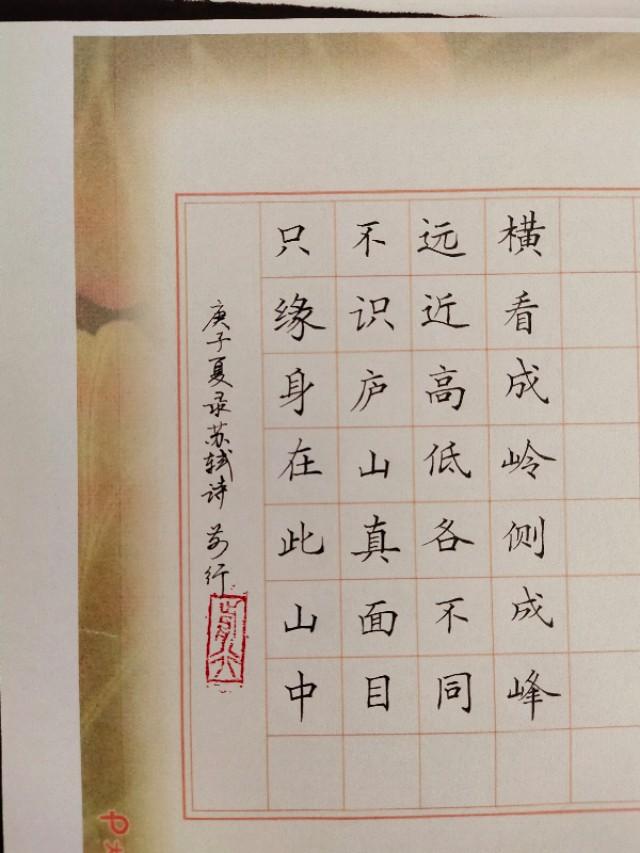 横看成岭侧成峰
远近高低各不同
不识庐山真面目
只缘身在此山中
庚子夏录苏轼诗 前行